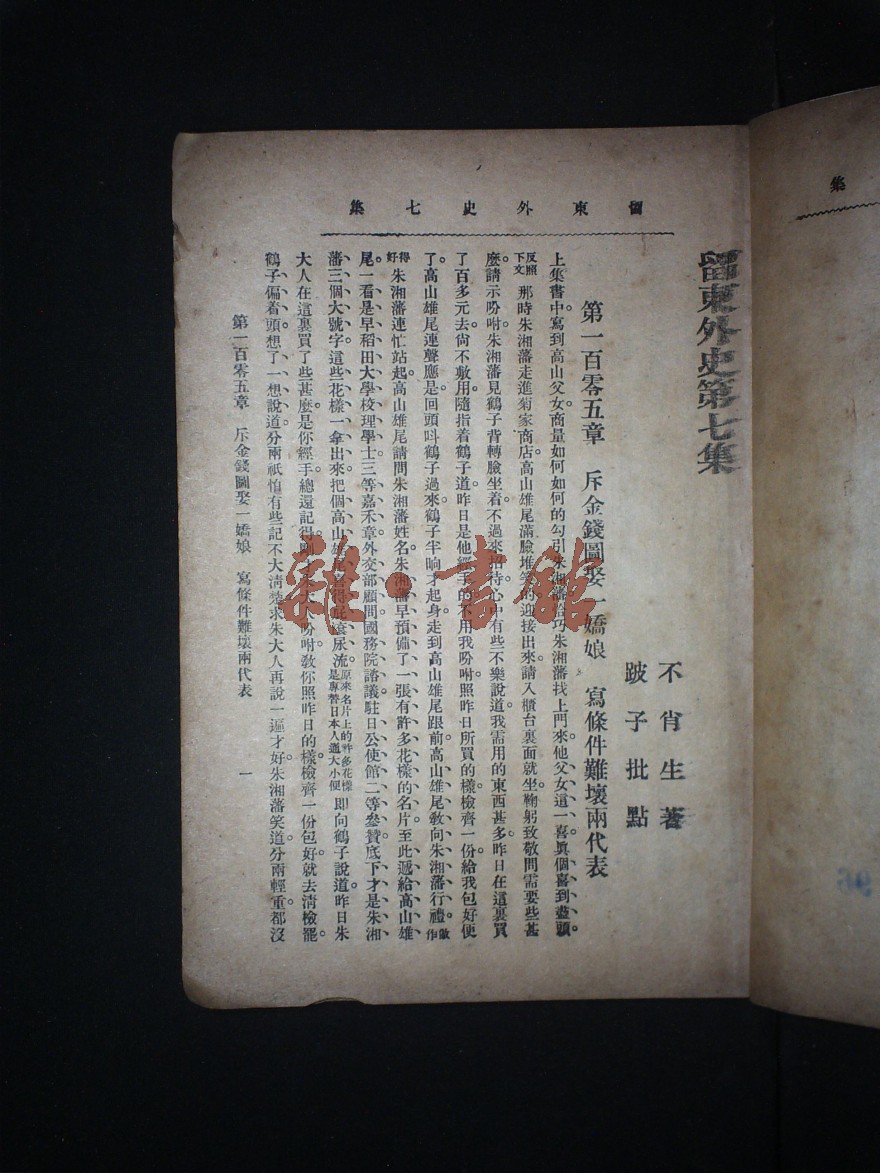 留東外史七集
留東外史第七集
不肖生著
跛子批點
第一百零五章　斥金錢圖娶一嬌娘　寫條件難壞兩代表
上集書中。寫到高山父女商量如何如何的勾引朱湘藩恰巧朱湘藩找上門來。他父女這一喜眞個喜到盡頭。
反照下文　那時朱湘藩走進菊家商店。高山雄尾滿臉堆笑的迎接出來。請入櫃台裏面就坐。鞠躬致敬問需要些甚
麼請示吩咐。朱湘藩見鶴子背轉臉坐着不過來招待心中有些不樂說道。我需用的東西甚多。昨日在這裏買
了百多元去。尙不敷用。隨指着鶴子道。昨日是他經手的。不用我吩咐。照昨日所買的樣。檢齊一份給我包好便
了。高山雄尾連聲應是。回頭叫鶴子過來。鶴子半晌才起身走到高山雄尾跟前高山雄尾敎向朱湘藩行禮。做作
得好　朱湘藩連忙站起。高山雄尾請問朱湘藩姓名。朱湘藩早預備了一張有許多花樣的名片。至此遞給高山雄
尾。一看是早稻田大學校理學士、三等嘉禾章、外交部顧問、國務院諮議、駐日公使館二等參贊。底下才是朱湘
藩三個大號字。這些花樣一拿出來、把個高山雄尾喜得屁滾尿流。原來名片上的許多花樣是專替日本人通大小便　即向鶴子說道。昨日朱
大人在這裏買了些甚麼。是你經手。總還記得。大人吩咐。敎你照昨日的樣檢齊一份包好。就去淸檢罷。
鶴子偏着頭想了一想說道。分兩祇怕有些記不大淸楚。求朱大人再說一遍才好。朱湘藩笑道。分兩輕重。都沒
第一百零五章　斥金錢圖娶一嬌娘　寫條件難壞兩代表
一
集
96
雜·書館